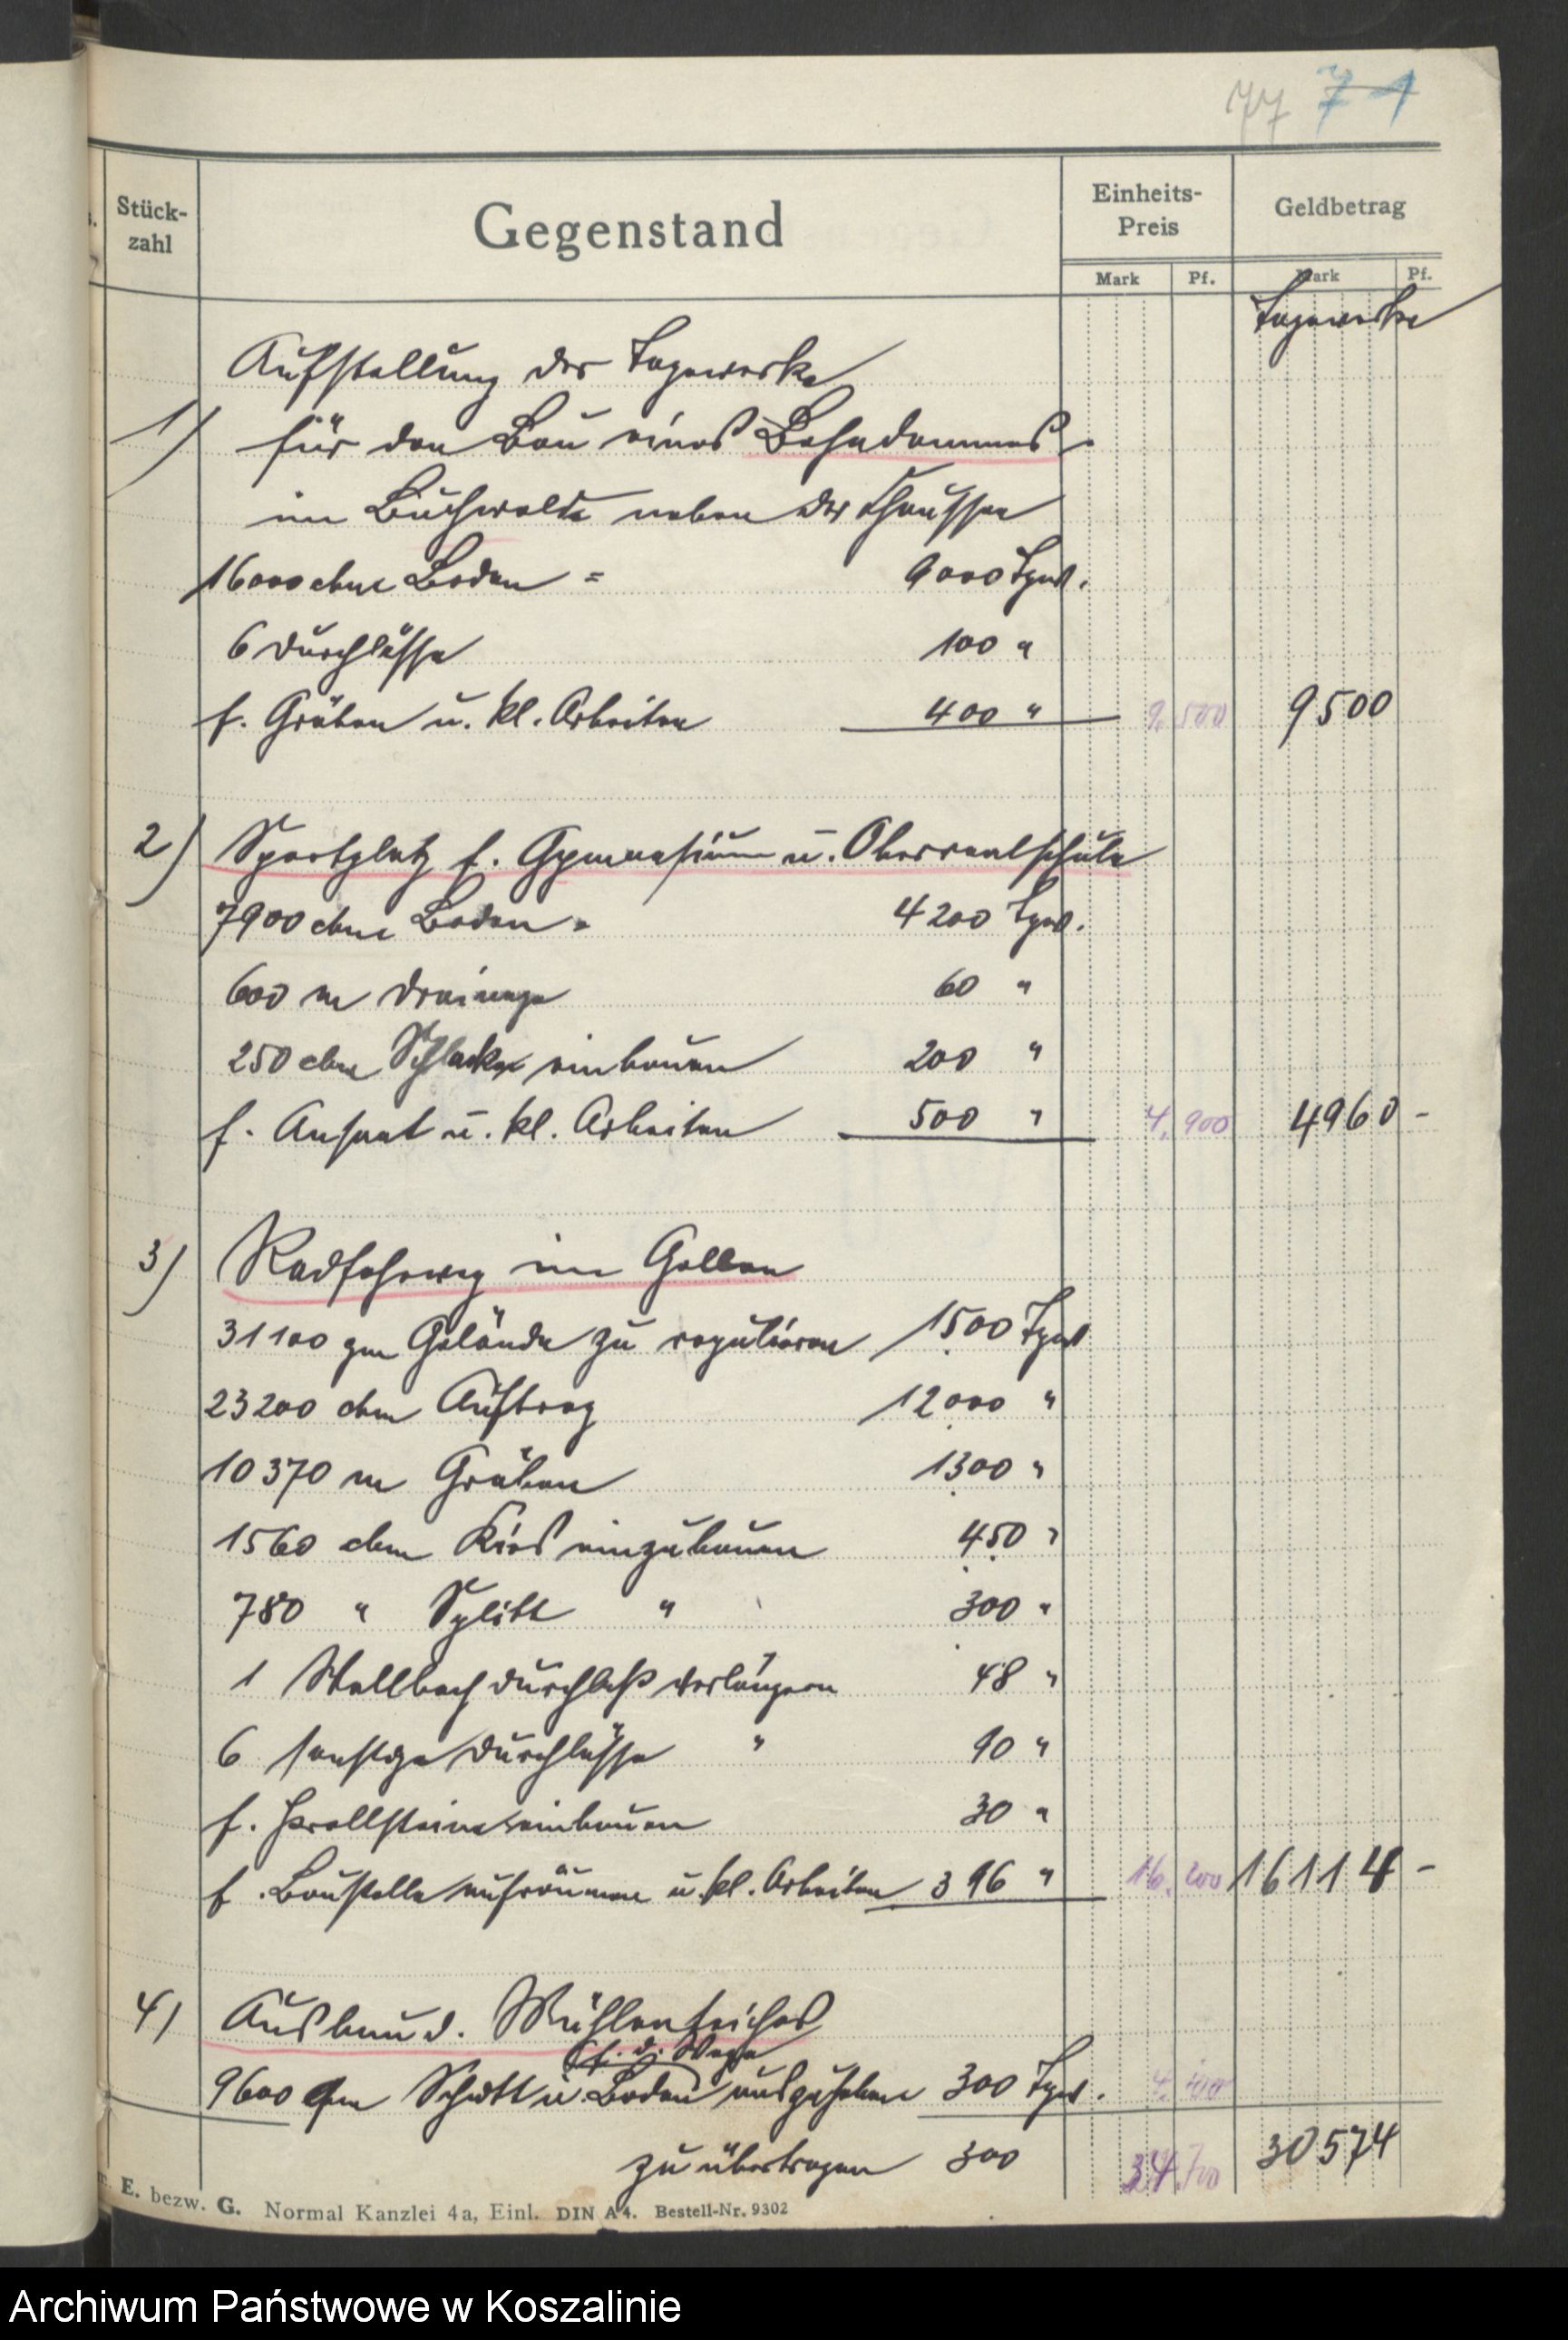 77 71
Stück-
zahl
Gegenstand
Einheits-
Preis
Geldbetrag
Mark Pf. Mark Pf.
Tagewerke
Aufstellung der Tagewerke
1) für den Bau eines Bahndammes
im Buchwalde neben der Chaussee
16000 cbm Boden = 9000 Tgw.
6 Durchlässe 100 "
f. Gräben u. kl. Arbeiten 400 " 9.500 9500
2) Sportplatz f. Gymnasium u. Oberrealschule
7900 cbm Boden = 4200 Tgw.
600 m Drainage 60 "
250 cbm Schlacke einbauen 200 "
f. Ansaat u. kl. Arbeiten 500 " 4.900 4960 -
3) Radfahrweg im Gollen
31100 qm Gelände zu regulieren 1500 Tgw
23200 cbm Auftrag 12000 "
10370 m Gräben 1300 "
1560 cbm Kies einzubauen 450 "
780 " Splitt " 300 "
1 Wallbachdurchlaß verlängern 48 "
6 sonstige Durchlässe " 90 "
f. Prellsteine einbauen 30 "
f. Baustelle aufräumen u. kl. Arbeiten 396 " 16.200 16114 -
4) Ausbau d. Mühlenteiches
f. d. Wege
9600 qm Schutt u. Boden auszuheben 300 Tgw.
zu übertragen 300 34.700 30574
E. bezw. G. Normal Kanzlei 4a, Einl. DIN A4. Bestell-Nr. 9302
Archiwum Państwowe w Koszalinie